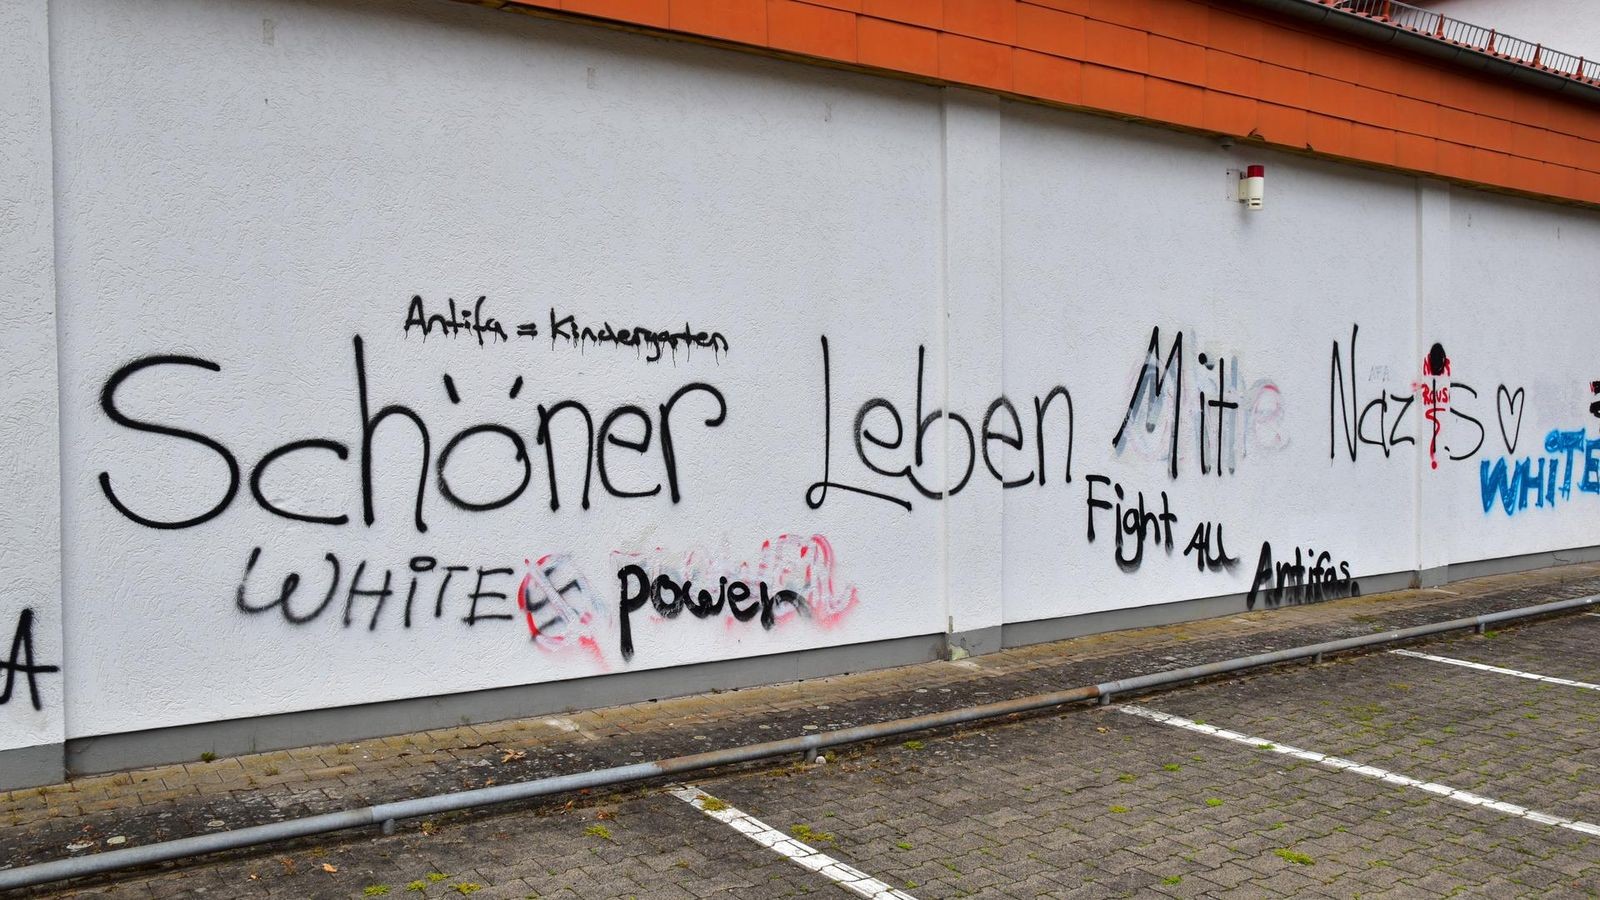 Antifa = Kindergarten
Schöner Leben Mit Nazis ♡
WHiTE
WHiTE power
Fight All Antifas.
A